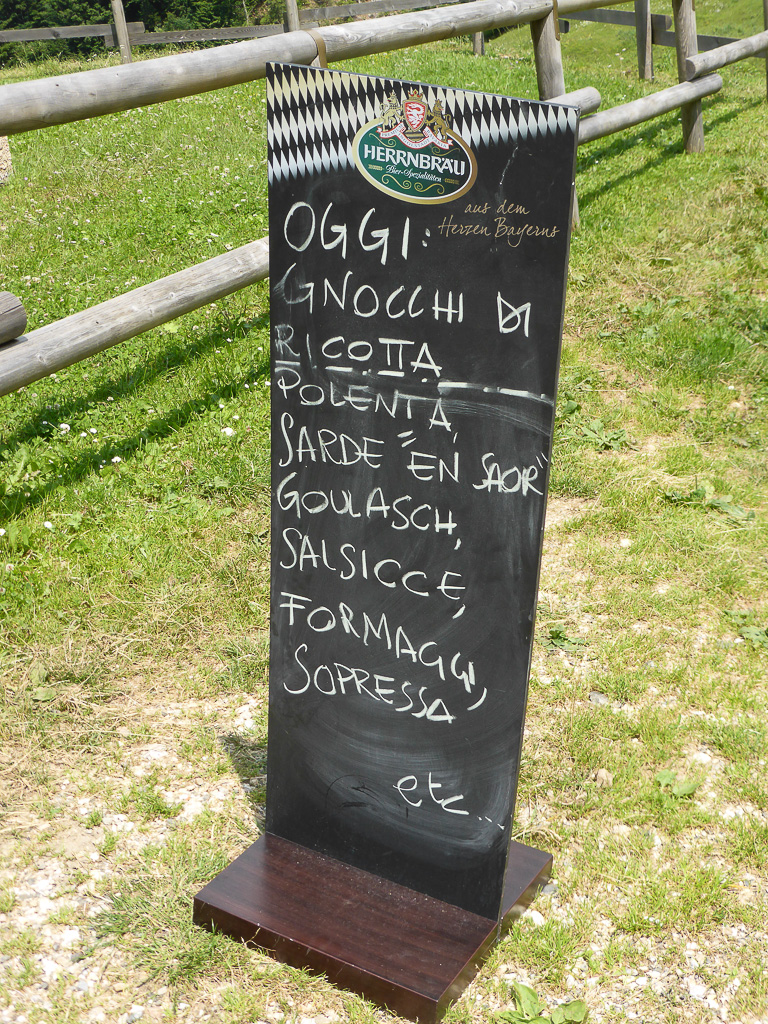 HERRNBRÄU
Bier-Spezialitäten
aus dem
Herzen Bayerns
OGGI:
GNOCCHI DI
RICOTTA
POLENTA,
SARDE "EN SAOR"
GOULASCH,
SALSICCE,
FORMAGGI,
SOPRESSA
etc...